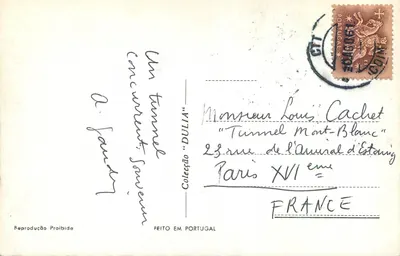 Un tunnel
concurrent. Souvenir
A. Gaudry
Colecção "DULIA"
CTT
Monsieur Louis Cachet
"Tunnel Mont-Blanc"
23 rue de l'amiral d'Estaing
Paris XVI eme
FRANCE
Reprodução Proibida
FEITO EM PORTUGAL